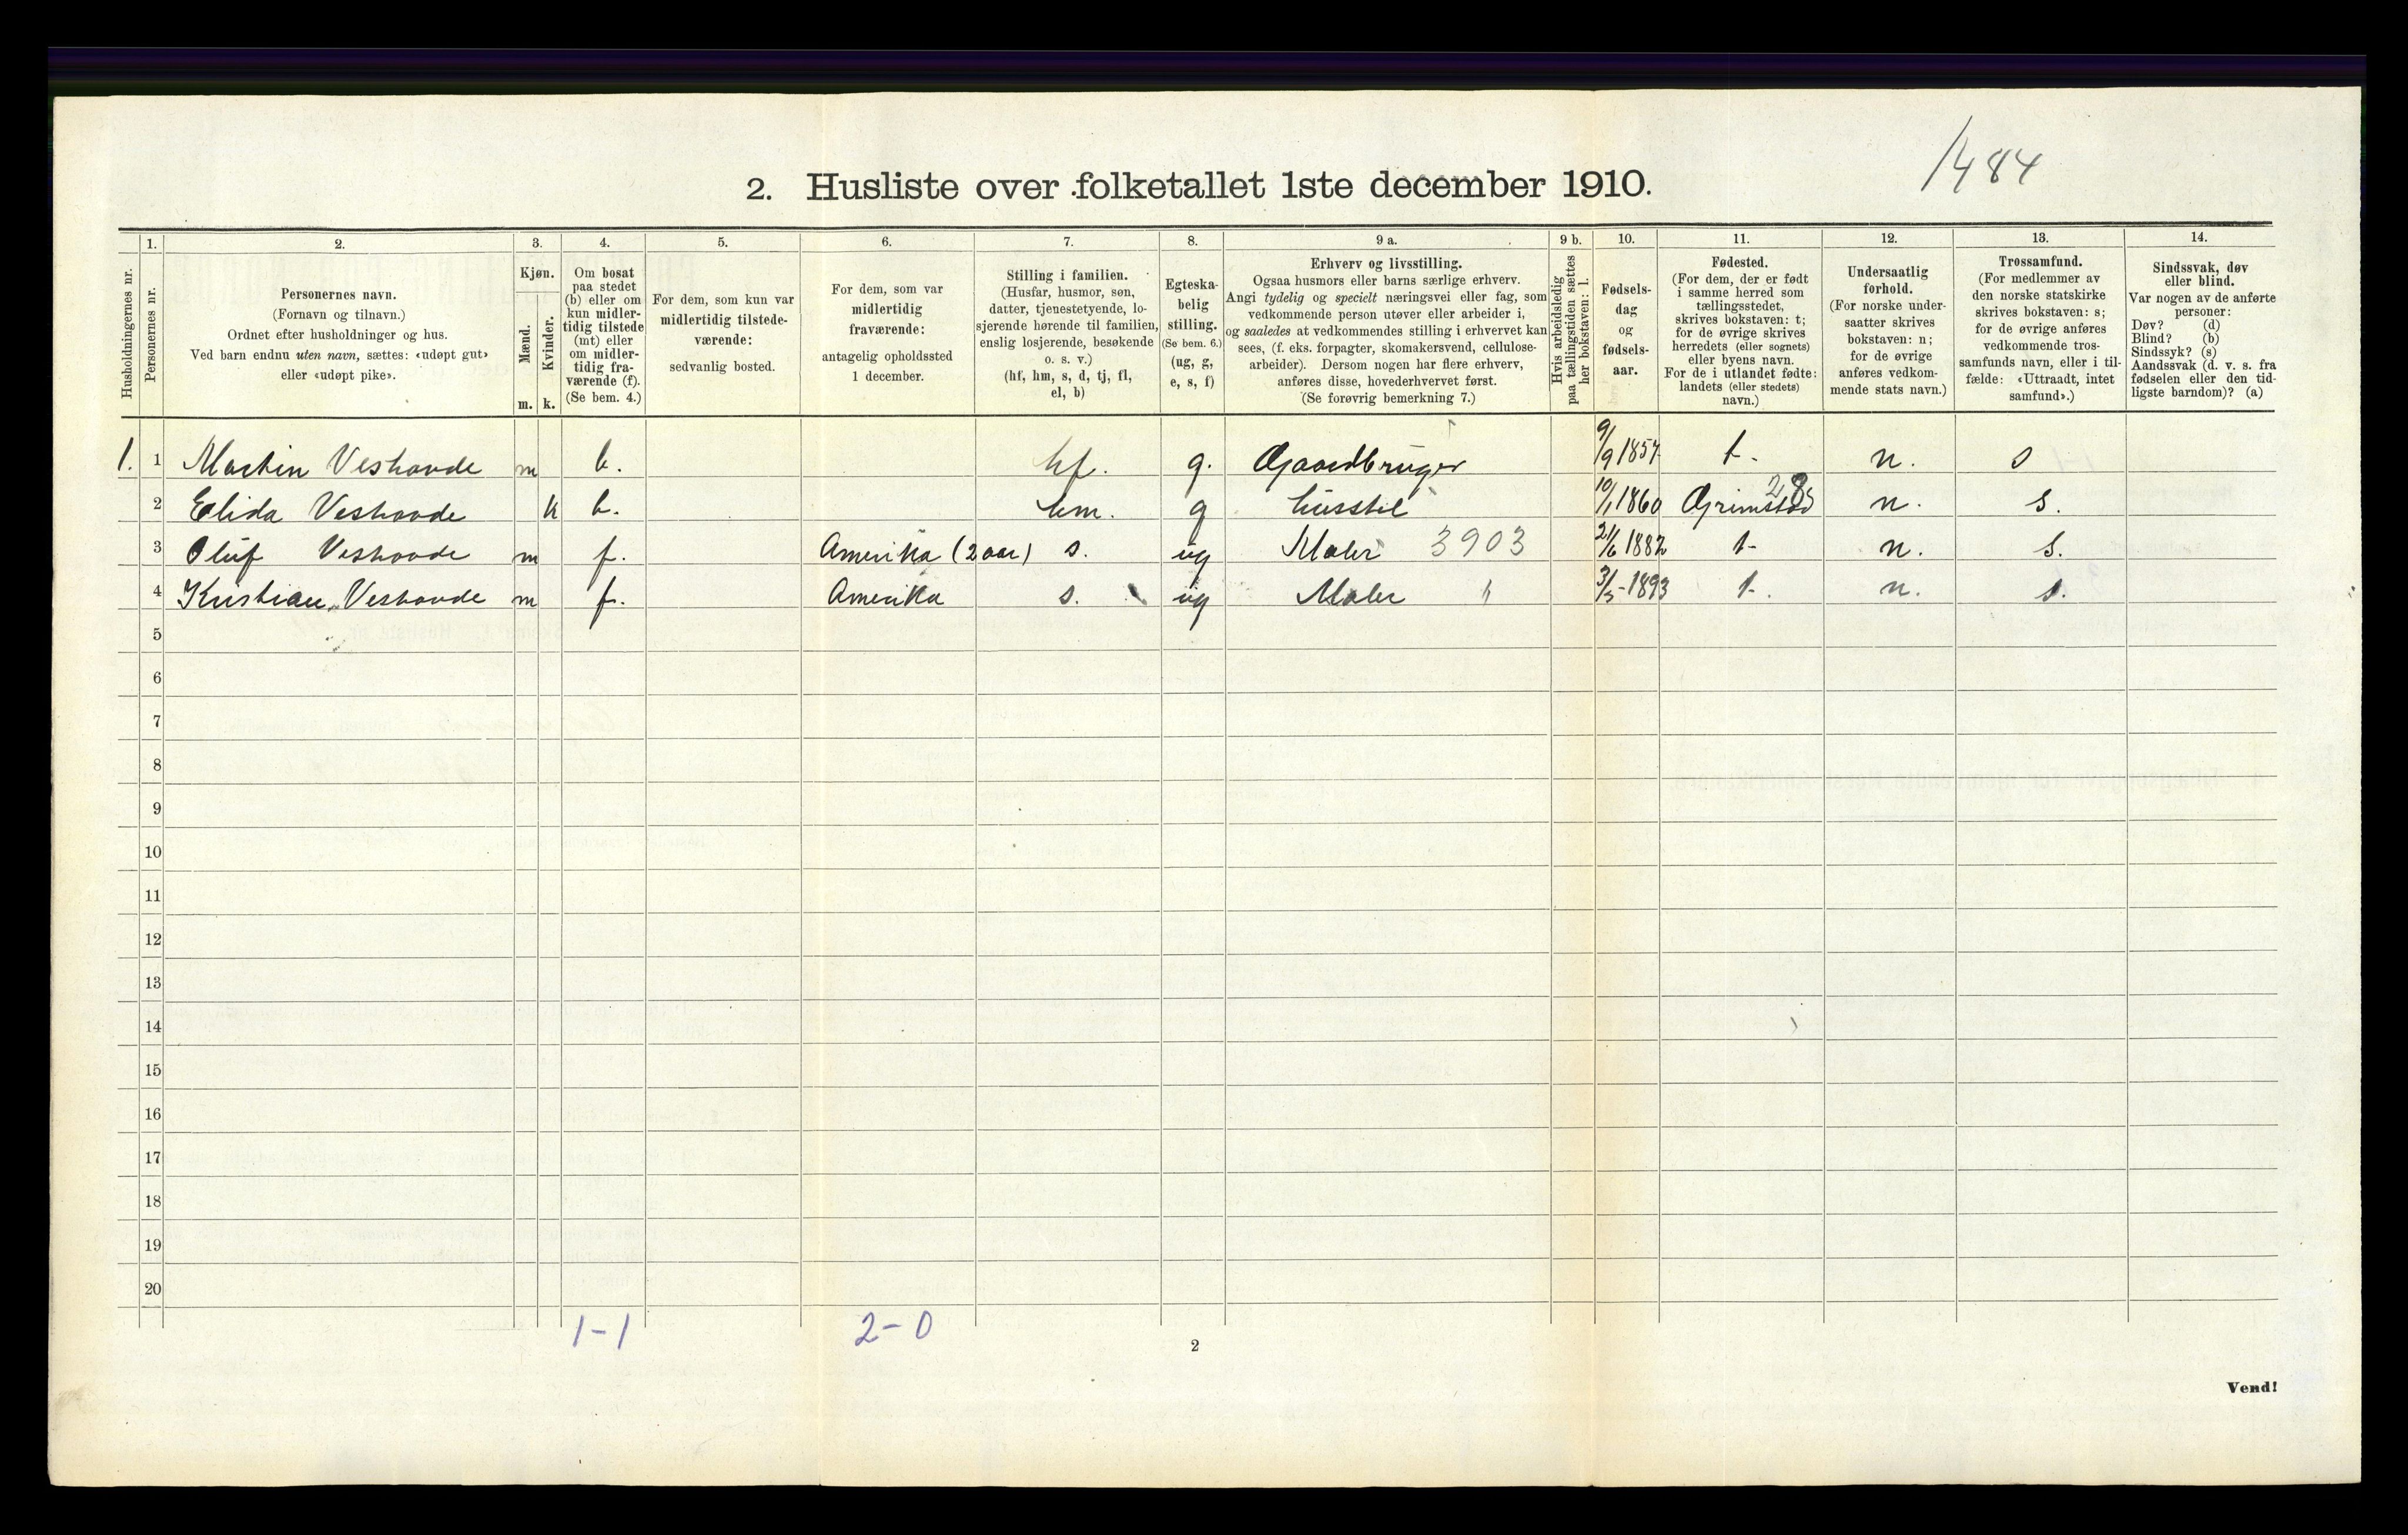 1484
2. Husliste over folketallet 1ste december 1910.
Husholdningernes nr.
1.
Personernes nr.
2.
Personernes navn.
(Fornavn og tilnavn.)
Ordnet efter husholdninger og hus.
Ved barn endnu uten navn, sættes: «udøpt gut»
eller «udøpt pike».
3.
Kjøn.
Mænd.
Kvinder.
m. k.
4.
Om bosat
paa stedet
(b) eller om
kun midler-
tidig tilstede
(mt) eller
om midler-
tidig fra-
værende (f).
(Se bem. 4.)
5.
For dem, som kun var
midlertidig tilstede-
værende:
sedvanlig bosted.
6.
For dem, som var
midlertidig
fraværende:
antagelig opholdssted
1 december.
7.
Stilling i familien.
(Husfar, husmor, søn,
datter, tjenestetyende, lo-
sjerende hørende til familien,
enslig losjerende, besøkende
o. s. v.)
(hf, hm, s, d, tj, fl,
el, b)
8.
Egteska-
belig
stilling.
(Se bem. 6.)
(ug, g,
e, s, f)
9 a.
Erhverv og livsstilling.
Ogsaa husmors eller barns særlige erhverv.
Angi tydelig og specielt næringsvei eller fag, som
vedkommende person utøver eller arbeider i,
og saaledes at vedkommendes stilling i erhvervet kan
sees, (f. eks. forpagter, skomakersvend, cellulose-
arbeider). Dersom nogen har flere erhverv,
anføres disse, hovederhvervet først.
(Se forøvrig bemerkning 7.)
9 b.
Hvis arbeidsledig
paa tællingstiden sættes
her bokstaven: l.
10.
Fødsels-
dag
og
fødsels-
aar.
11.
Fødested.
(For dem, der er født
i samme herred som
tællingsstedet,
skrives bokstaven: t;
for de øvrige skrives
herredets (eller sognets)
eller byens navn.
For de i utlandet fødte:
landets (eller stedets)
navn.)
12.
Undersaatlig
forhold.
(For norske under-
saatter skrives
bokstaven: n;
for de øvrige
anføres vedkom-
mende stats navn.)
13.
Trossamfund.
(For medlemmer av
den norske statskirke
skrives bokstaven: s;
for de øvrige anføres
vedkommende tros-
samfunds navn, eller i til-
fælde: «Uttraadt, intet
samfund».)
14.
Sindssvak, døv
eller blind.
Var nogen av de anførte
personer:
Døv? (d)
Blind? (b)
Sindssyk? (s)
Aandssvak (d. v. s. fra
fødselen eller den tid-
ligste barndom)? (a)
1. 1 Martin Veshovde m b. hf. g. Gaardbruger 9/9 1857 t. n. s
28
2 Elida Veshovde k b. hm. g husstel 10/1 1860 Grimstad n. s.
3 Oluf Veshovde m f. Amerika (2 aar) s. ug Maler 3903 21/6 1882 t. n. s.
4 Kristian Veshovde m f. Amerika s. ug Maler 3/5-1893 t. n. s.
5
6
7
8
9
10
11
12
13
14
15
16
17
18
19
20
1-1 2-0
2
Vend!